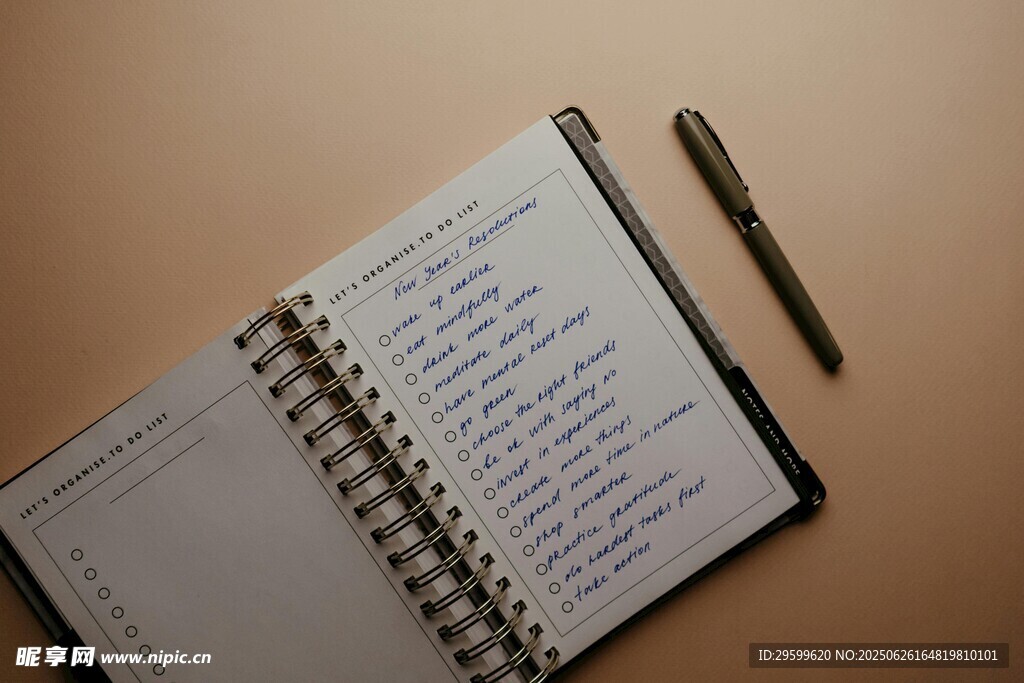 LET'S ORGANISE.TO DO LIST
LET'S ORGANISE.TO DO LIST
New Year's Resolutions
wake up earlier
eat mindfully
drink more water
meditate daily
have mental reset days
go green
choose the right friends
be ok with saying No
invest in experiences
create more things
spend more time in nature
shop smarter
practice gratitude
do hardest tasks first
take action
NOTES AND MORE
昵享网 www.nipic.cn
ID:29599620 NO:20250626164819810101